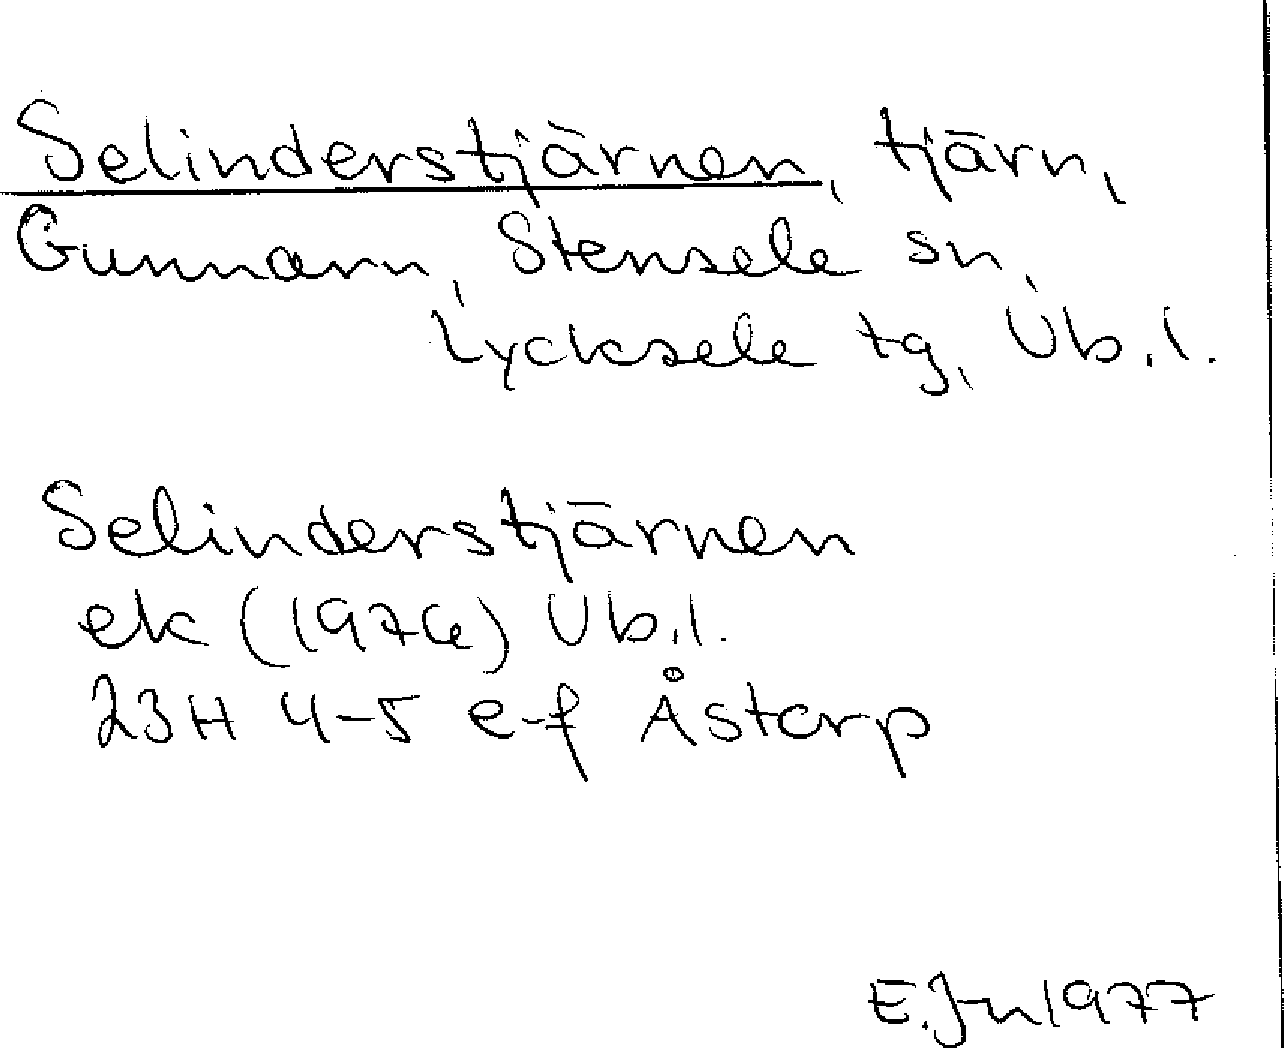 Selinderstjärnen, tjärn,
Gunnarn, Stensele sn,
Lycksele tg, Vb.l.
Selinderstjärnen
ek (1976) Vb.l.
23H 4-5 e-f Åstorp
E.Jn 1977